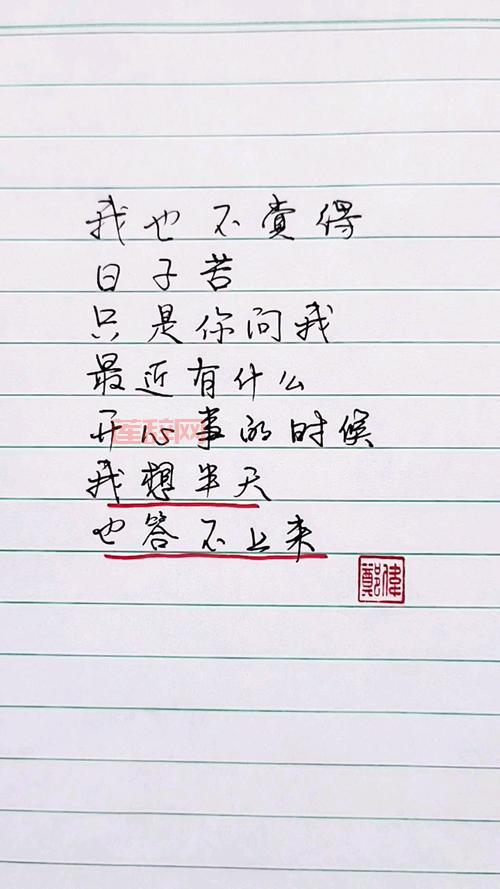 我也不覺得
日子苦
只是你问我
最近有什么
开心事的时候
我想半天
也答不上来
鄭偉